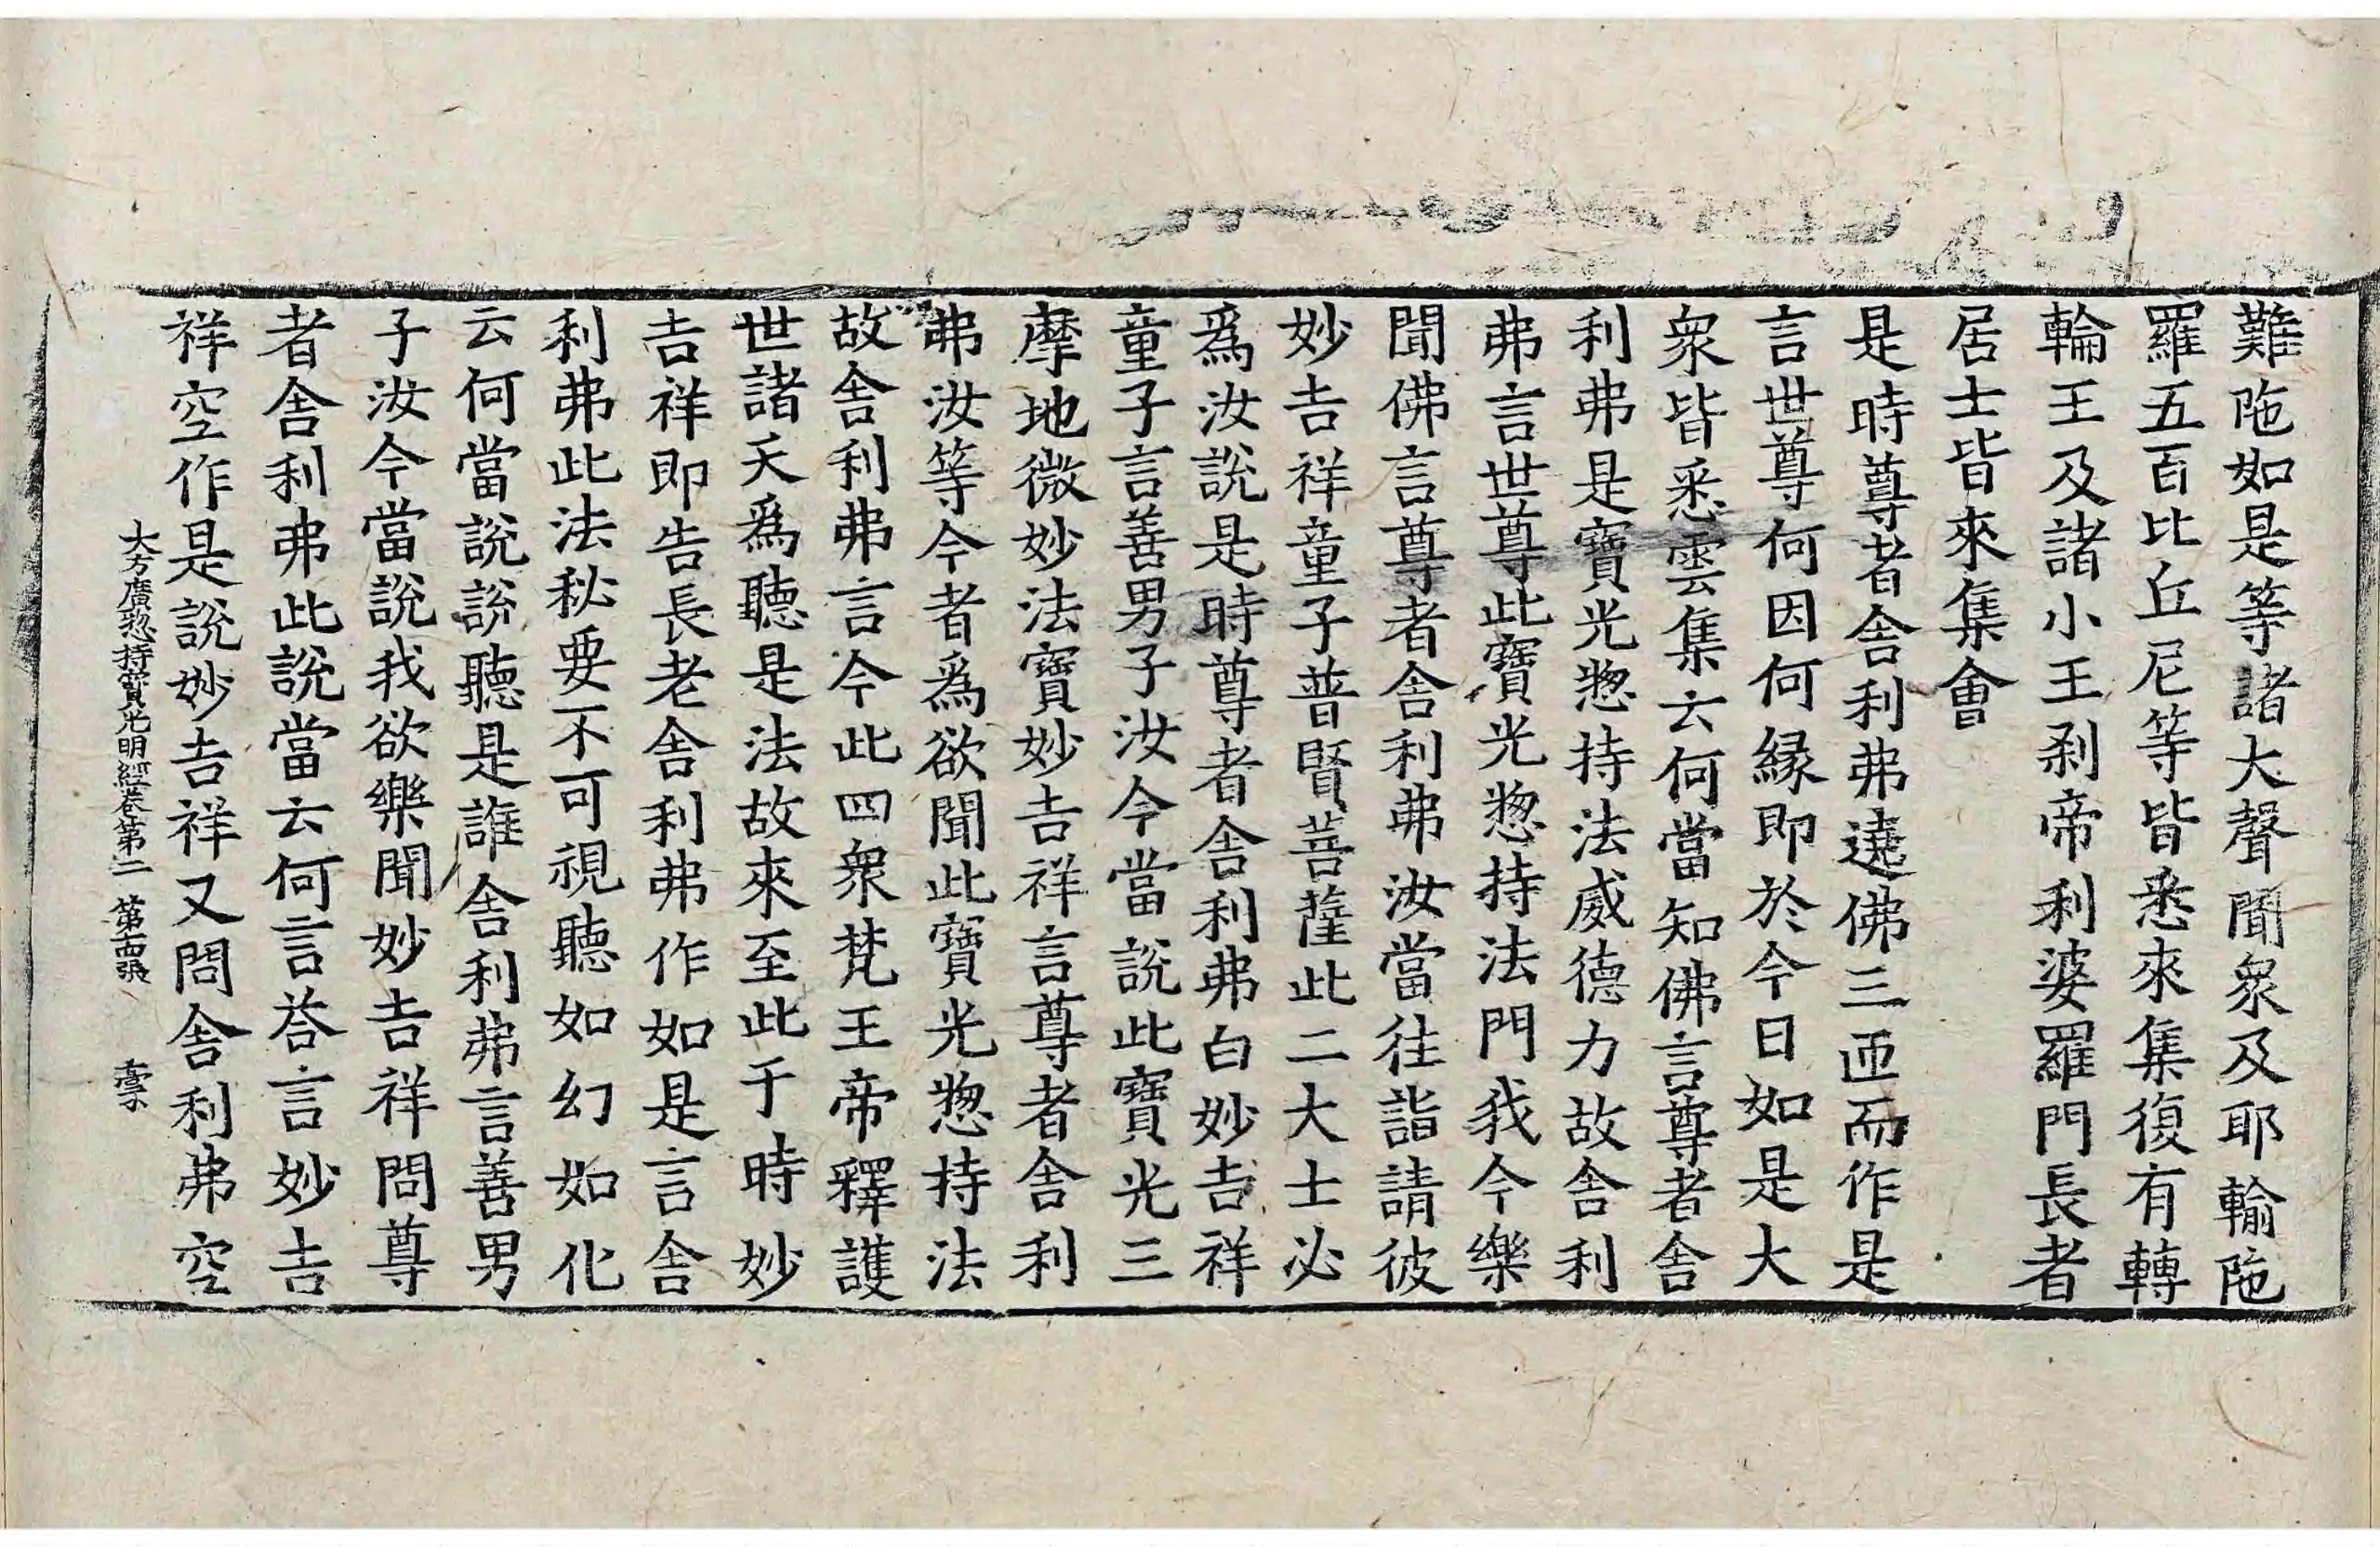 難陁如是等諸大聲聞衆及耶輸陁
羅五百比丘尼等皆悉來集復有轉
輪王及諸小王剎帝利婆羅門長者
居士皆來集會
是時尊者舍利弗遶佛三匝而作是
言世尊何因何緣即於今日如是大
衆皆悉雲集云何當知佛言尊者舍
利弗是寶光揔持法威德力故舍利
弗言世尊此寶光揔持法門我今樂
聞佛言尊者舍利弗汝當往詣請彼
妙吉祥童子普賢菩薩此二大士必
爲汝說是時尊者舍利弗白妙吉祥
童子言善男子汝今當說此寶光三
摩地微妙法寶妙吉祥言尊者舍利
弗汝等今者爲欲聞此寶光揔持法
故舍利弗言今此四衆梵王帝釋護
世諸天爲聽是法故來至此于時妙
吉祥即告長老舍利弗作如是言舍
利弗此法秘要不可視聽如幻如化
云何當說說聽是誰舍利弗言善男
子汝今當說我欲樂聞妙吉祥問尊
者舍利弗此說當云何言荅言妙吉
祥空作是說妙吉祥又問舍利弗空
大方廣揔持寶光明經卷第二 第十四張